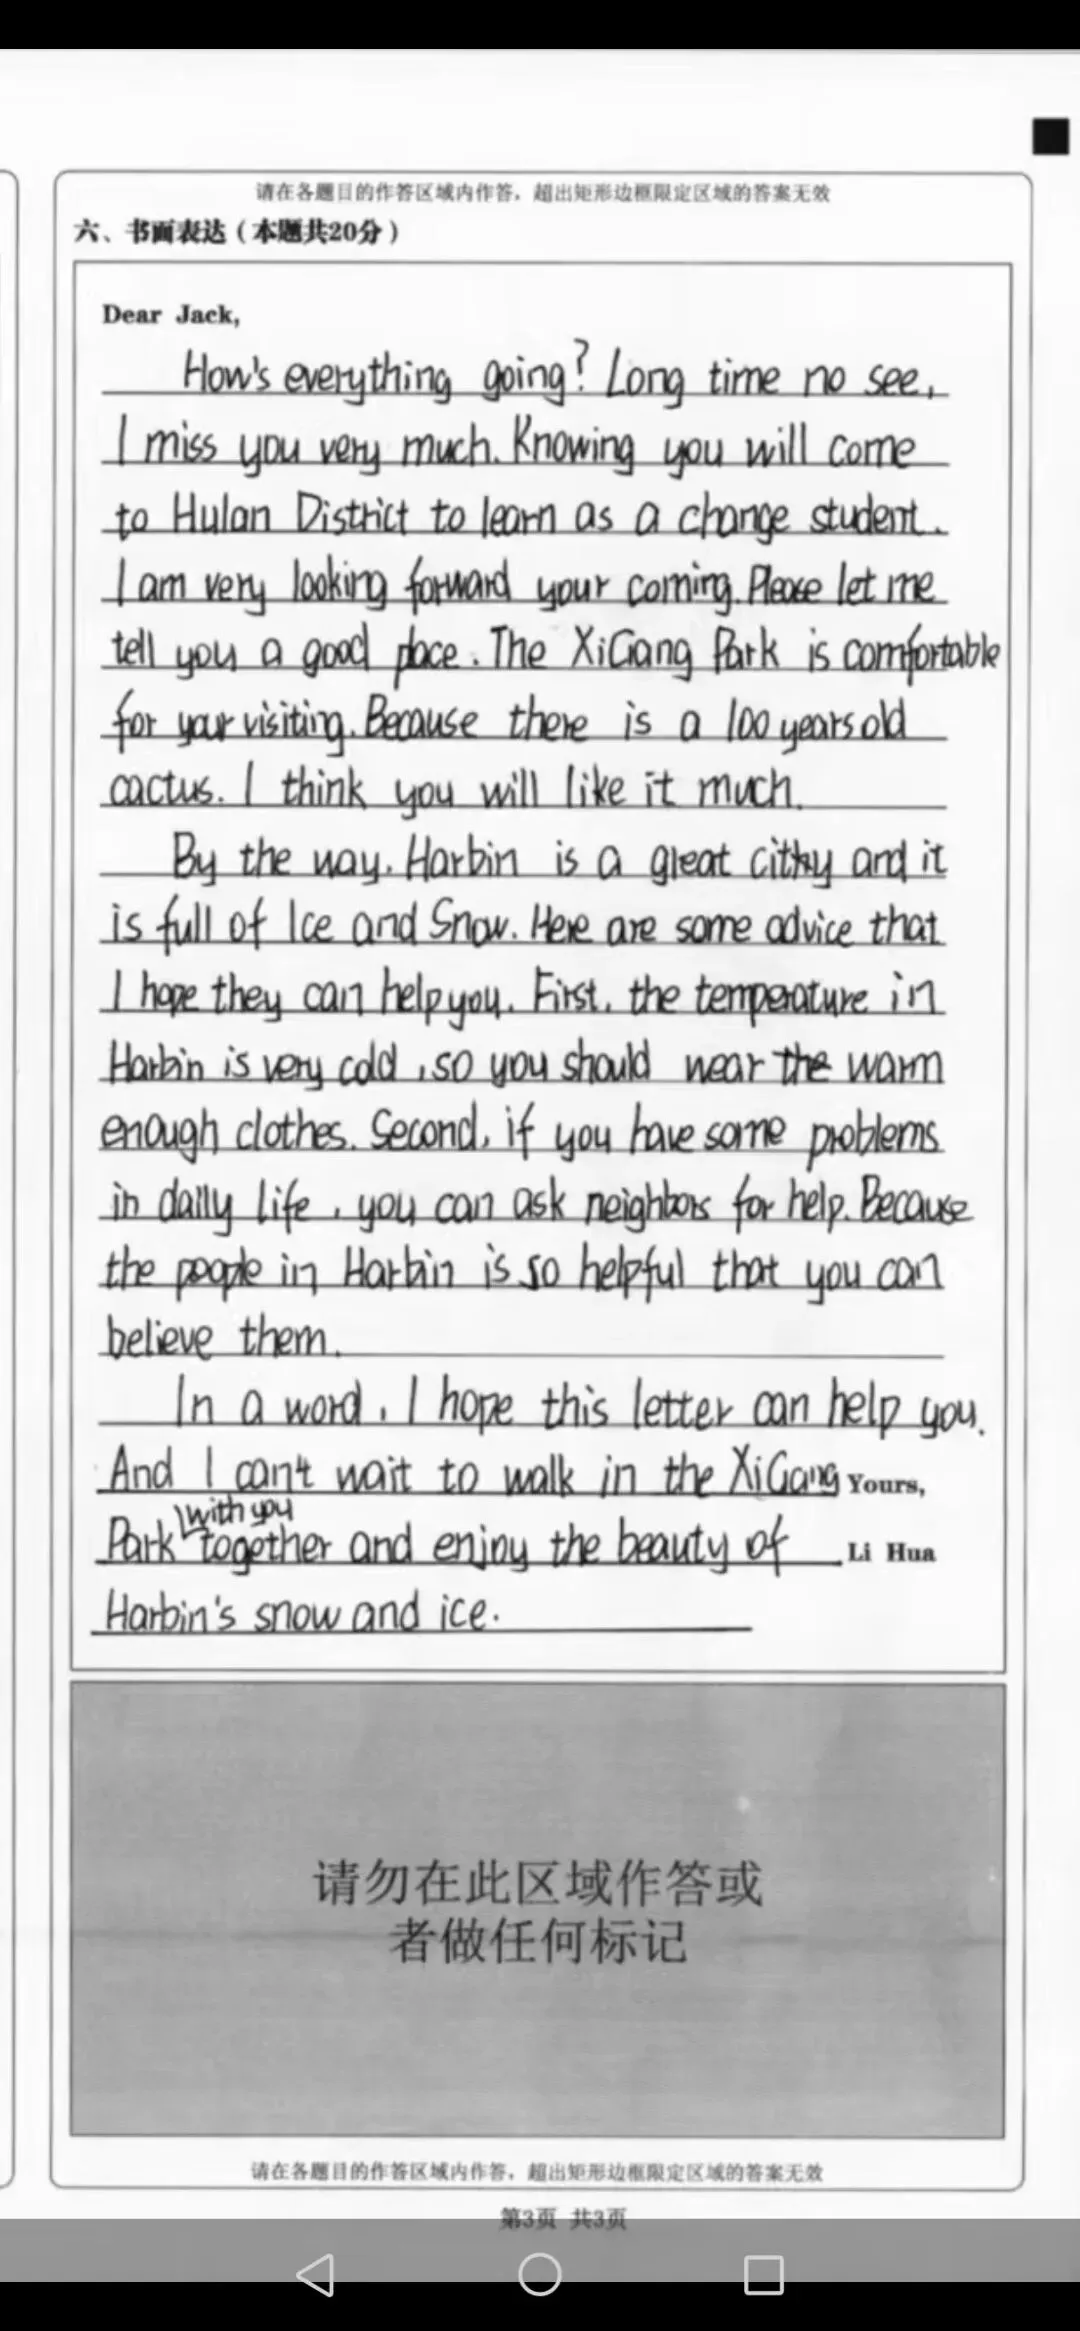 请在各题目的作答区域内作答，超出矩形边框限定区域的答案无效
六、书面表达（本题共20分）
Dear Jack,
How's everything going? Long time no see,
I miss you very much. Knowing you will come
to Hulan District to learn as a change student.
I am very looking forward your coming. Please let me
tell you a good place. The XiGang Park is comfortable
for your visiting. Because there is a 100 years old
cactus. I think you will like it much.
By the way, Harbin is a great cithy and it
is full of Ice and Snow. Here are some advice that
I hope they can help you. First, the temperature in
Harbin is very cold, so you should wear the warm
enough clothes. Second, if you have some problems
in daily life, you can ask neighbors for help. Because
the people in Harbin is so helpful that you can
believe them.
In a word, I hope this letter can help you.
And I can't wait to walk in the XiGang Yours,
with you
Park together and enjoy the beauty of Li Hua
Harbin's snow and ice.
请勿在此区域作答或
者做任何标记
请在各题目的作答区域内作答，超出矩形边框限定区域的答案无效
第3页 共3页